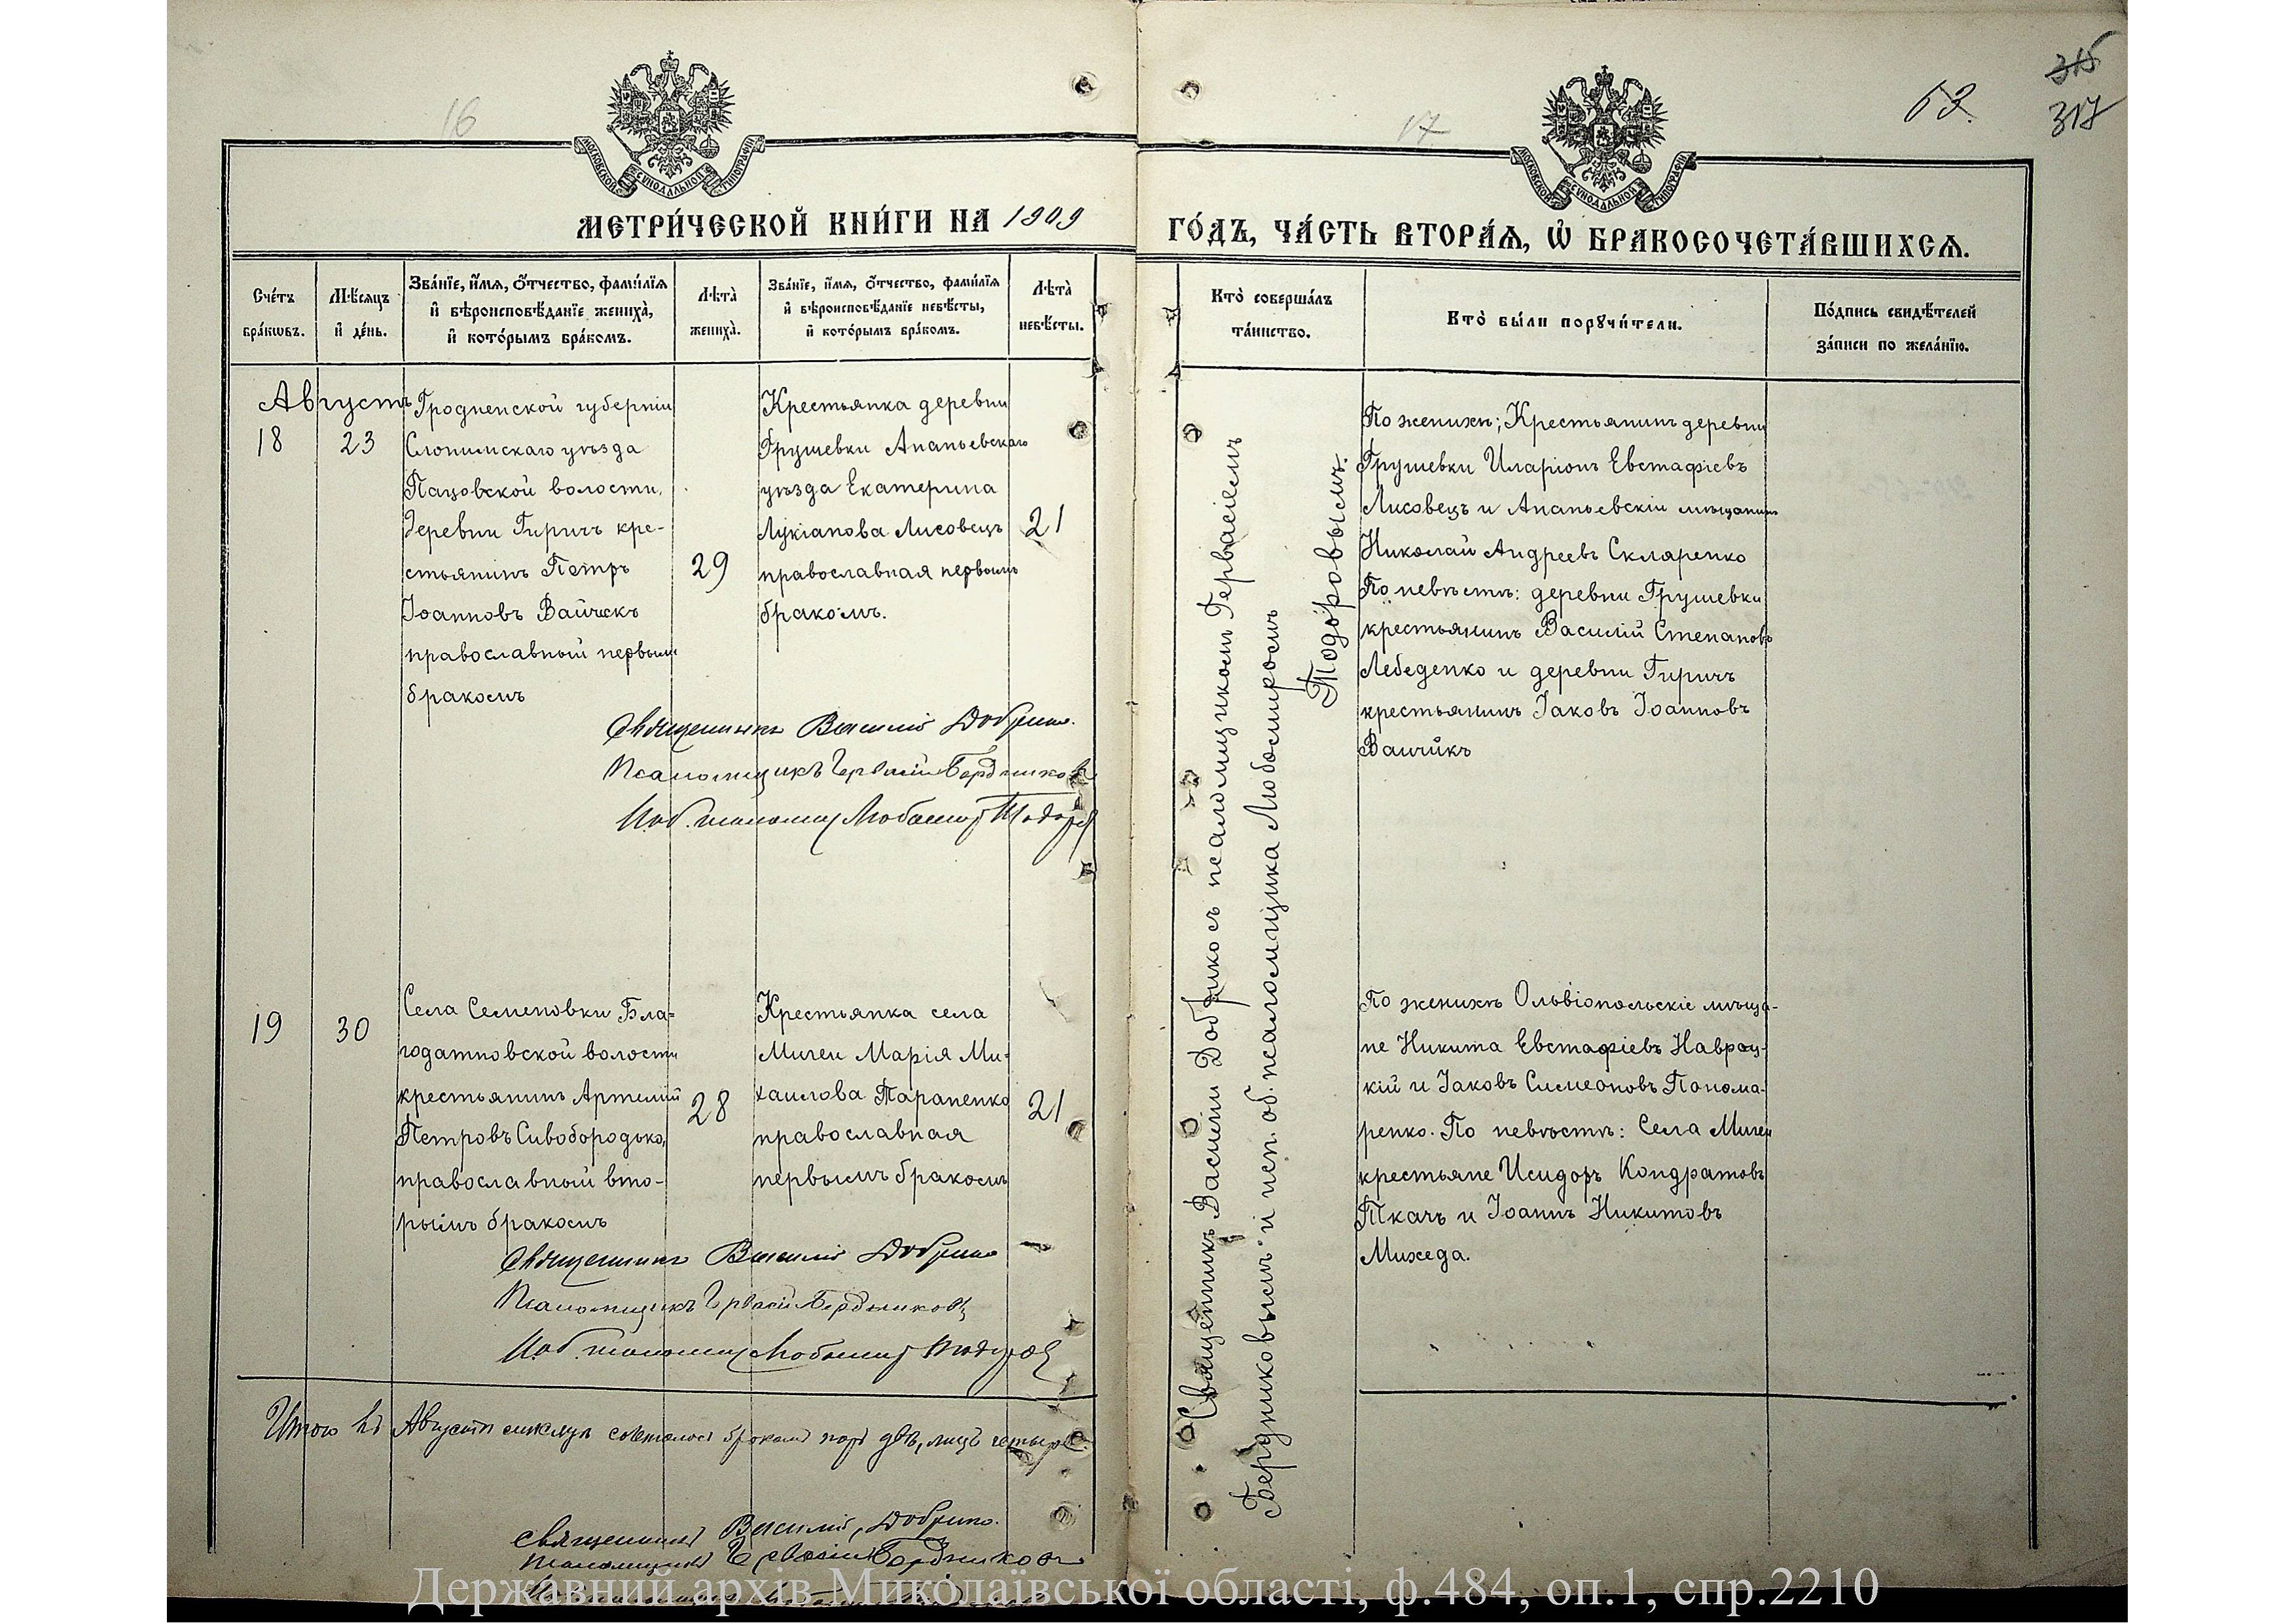 16
МЕТРИ́ЧЕСКОЙ КНИ́ГИ НА 1909
Сче́тъ бра́кѡвъ.
Мѣ́сяцъ и҆ де́нь.
Зва́нїе, и҆́мѧ, ѻ҆́тчество, фами́лїѧ и҆ вѣроисповѣ́данїе жениха̀, и҆ кото́рымъ бра́комъ.
Лѣта̀ жениха̀.
Зва́нїе, и҆́мѧ, ѻ҆́тчество, фами́лїѧ и҆ вѣроисповѣ́данїе невѣ́сты, и҆ кото́рымъ бра́комъ.
Лѣта̀ невѣ́сты.
Августъ
18
23
Гродненской губерніи
Слонимскаго уѣзда
Пацовской волости,
деревни Гиричъ кре-
стьянинъ Петръ
Іоанновъ Вайчикъ
православный первымъ
бракомъ
29
Крестьянка деревни
Грушевки Ананьевскаго
уѣзда Екатерина
Лукіанова Лисовецъ
православная первымъ
бракомъ.
21
Священникъ Василій Добрико.
Псаломщикъ Гервасій Бердниковъ
И.об. псаломщ. Любомиръ Тодоровъ
19
30
Села Семеновки Бла-
годатновской волости
крестьянинъ Артемій
Петровъ Сивобородько,
православный вто-
рымъ бракомъ
28
Крестьянка села
Мигеи Марія Ми-
хаилова Тараненко
православная
первымъ бракомъ
21
Священникъ Василій Добрико
Псаломщикъ Гервасій Бердниковъ
И.об. псаломщ. Любомиръ Тодоровъ
Итого въ Августѣ мѣсяцѣ сочеталось бракомъ паръ двѣ, лицъ четыре.
Священникъ Василій Добрико.
Псаломщикъ Гервасій Бердниковъ
17
63.
315
317
ГО́ДЪ, ЧА́СТЬ ВТОРА́Ѧ, Ѡ҆ БРАКОСОЧЕТА́ВШИХСѦ.
Кто̀ соверша́лъ та́инство.
Кто̀ бы́ли порꙋчи́тели.
По́дпись свидѣ́телей за́писи по жела́нїю.
Священникъ Василій Добрико съ псаломщикомъ Гервасіемъ
Бердниковымъ и исп. об. псаломщика Любомиромъ
Тодоровымъ.
По женихѣ; Крестьянинъ деревни
Грушевки Иларіонъ Евстафіевъ
Лисовецъ и Ананьевскій мѣщанинъ
Николай Андреевъ Скляренко
По невѣстѣ: деревни Грушевки
крестьянинъ Василій Степановъ
Лебеденко и деревни Гиричъ
крестьянинъ Іаковъ Іоанновъ
Вайчикъ
По женихѣ Ольвіопольскіе мѣща-
не Никита Евстафіевъ Навроц-
кій и Іаковъ Симеоновъ Понома-
ренко. По невѣстѣ: Села Мигеи
крестьяне Исидоръ Кондратовъ
Ткачъ и Іоаннъ Никитовъ
Михеда.
Державний архів Миколаївської області, ф.484, оп.1, спр.2210